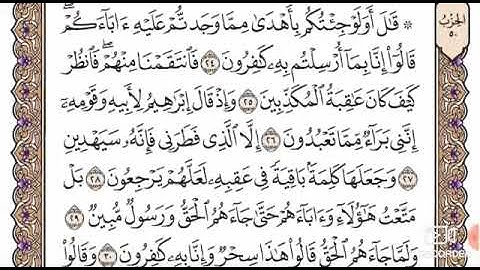 ۞ قَالَ أَوَلَوْ جِئْتُكُم بِأَهْدَىٰ مِمَّا وَجَدتُّمْ عَلَيْهِ ءَابَآءَكُمْ ۖ
قَالُوٓا۟ إِنَّا بِمَآ أُرْسِلْتُم بِهِۦ كَٰفِرُونَ ٢٤ فَٱنتَقَمْنَا مِنْهُمْ ۖ فَٱنظُرْ
كَيْفَ كَانَ عَٰقِبَةُ ٱلْمُكَذِّبِينَ ٢٥ وَإِذْ قَالَ إِبْرَٰهِيمُ لِأَبِيهِ وَقَوْمِهِۦٓ
إِنَّنِى بَرَآءٌ مِّمَّا تَعْبُدُونَ ٢٦ إِلَّا ٱلَّذِى فَطَرَنِى فَإِنَّهُۥ سَيَهْدِينِ
٢٧ وَجَعَلَهَا كَلِمَةًۢ بَاقِيَةً فِى عَقِبِهِۦ لَعَلَّهُمْ يَرْجِعُونَ ٢٨ بَلْ
مَتَّعْتُ هَٰٓؤُلَآءِ وَءَابَآءَهُمْ حَتَّىٰ جَآءَهُمُ ٱلْحَقُّ وَرَسُولٌ مُّبِينٌ ٢٩
وَلَمَّا جَآءَهُمُ ٱلْحَقُّ قَالُوا۟ هَٰذَا سِحْرٌ وَإِنَّا بِهِۦ كَٰفِرُونَ ٣٠ وَقَالُوا۟
الحزب
٥٠